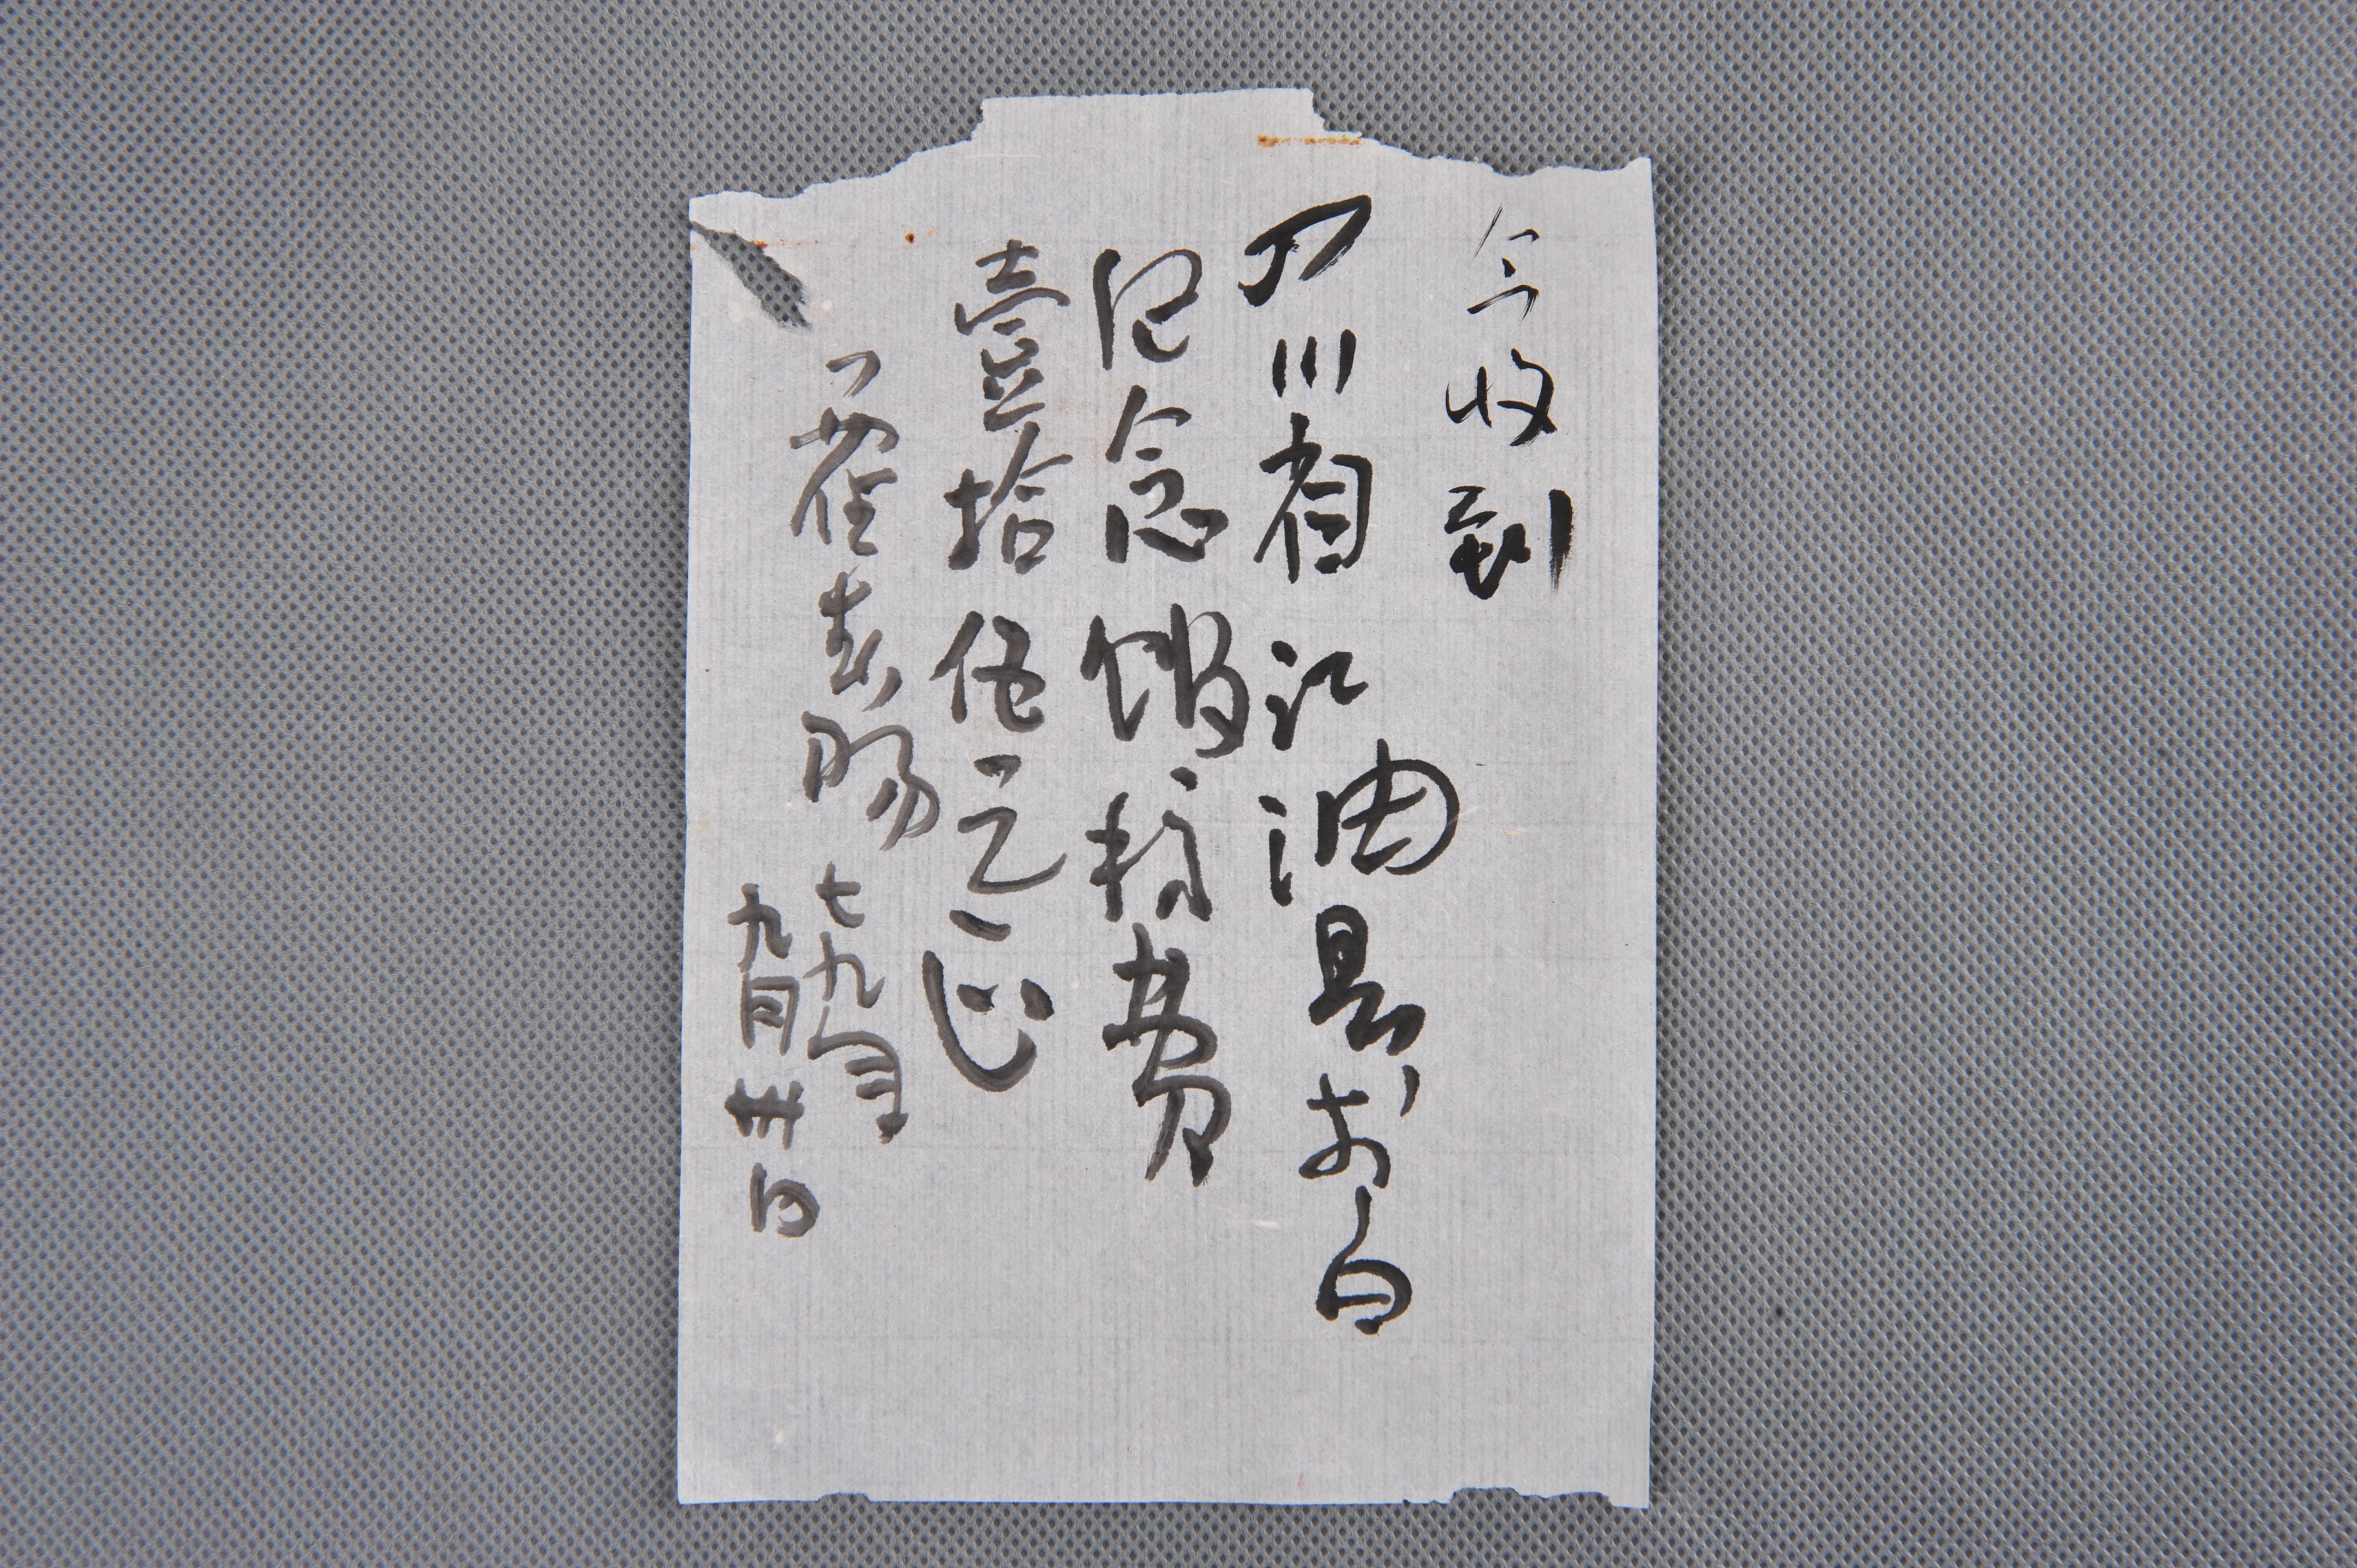 今收到
四川省江油县李白
纪念馆稿费
壹拾伍元正
霍春陽 七九年
九月卅日